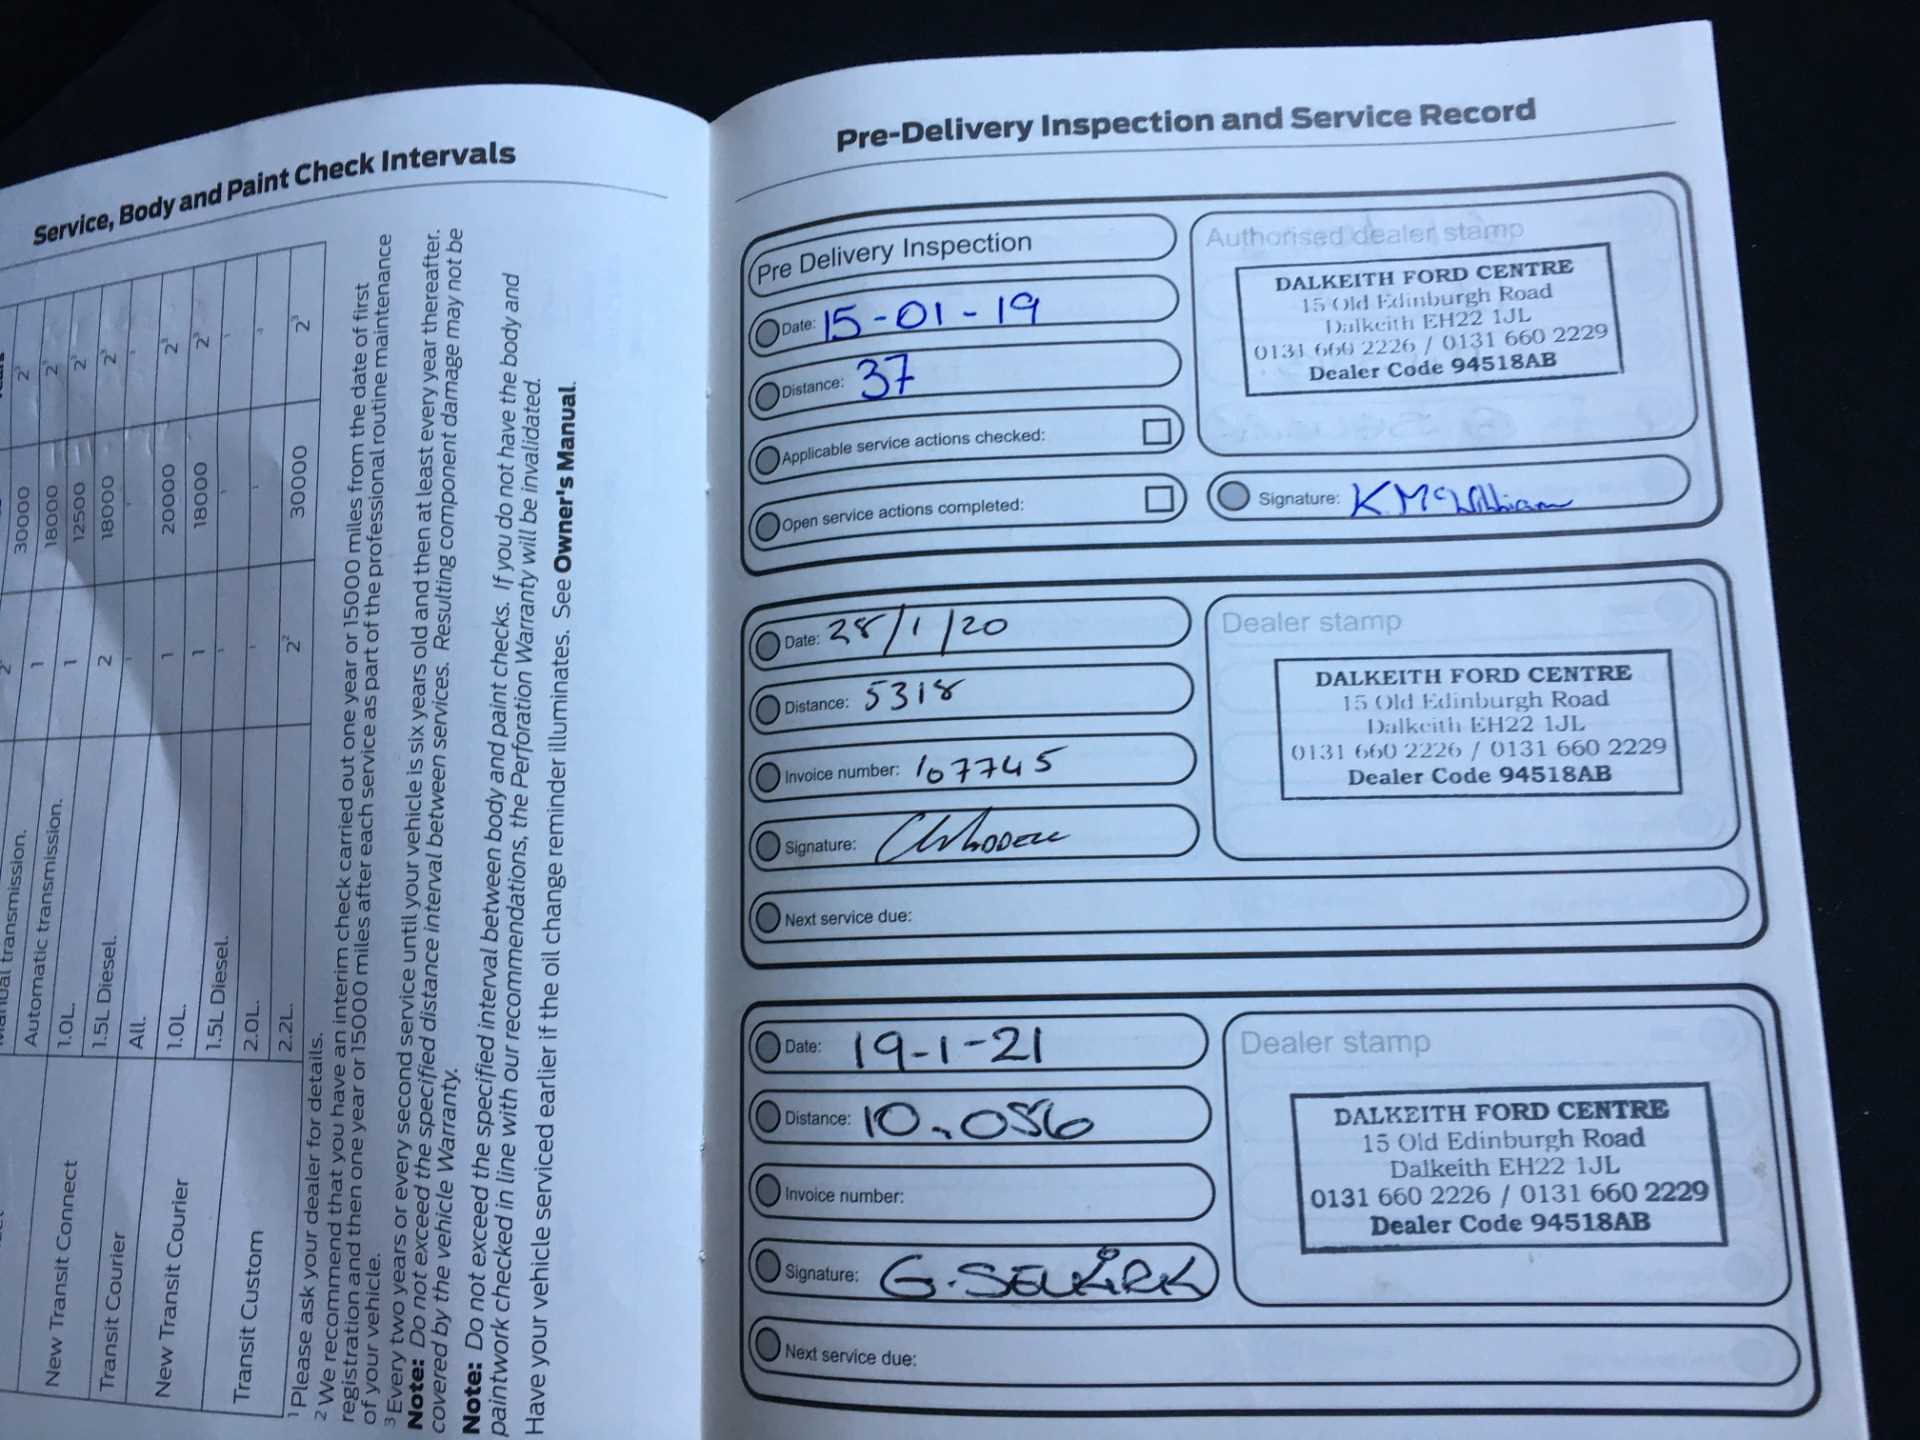 Service, Body and Paint Check Intervals
30000
Automatic transmission.
1
18000
2³
New Transit Connect
1.0L.
1
12500
2³
Transit Courier
1.5L Diesel.
2
18000
2³
All.
New Transit Courier
1.0L.
1
20000
2³
1.5L Diesel.
1
18000
2³
Transit Custom
2.0L.
2.2L.
2²
30000
2³
¹ Please ask your dealer for details.
² We recommend that you have an interim check carried out one year or 15000 miles from the date of first
registration and then one year or 15000 miles after each service as part of the professional routine maintenance
of your vehicle.
³ Every two years or every second service until your vehicle is six years old and then at least every year thereafter.
Note: Do not exceed the specified distance interval between services. Resulting component damage may not be
covered by the vehicle Warranty.
Note: Do not exceed the specified interval between body and paint checks. If you do not have the body and
paintwork checked in line with our recommendations, the Perforation Warranty will be invalidated.
Have your vehicle serviced earlier if the oil change reminder illuminates. See Owner's Manual.
Pre-Delivery Inspection and Service Record
Pre Delivery Inspection
Date: 15-01-19
Distance: 37
Applicable service actions checked:
Open service actions completed:
Authorised dealer stamp
DALKEITH FORD CENTRE
15 Old Edinburgh Road
Dalkeith EH22 1JL
0131 660 2226 / 0131 660 2229
Dealer Code 94518AB
Signature: K McWilliam
Date: 28/1/20
Distance: 5318
Invoice number: 107745
Signature:
Next service due:
Dealer stamp
DALKEITH FORD CENTRE
15 Old Edinburgh Road
Dalkeith EH22 1JL
0131 660 2226 / 0131 660 2229
Dealer Code 94518AB
Date: 19-1-21
Distance: 10.056
Invoice number:
Signature: G. SELKIRK
Next service due:
Dealer stamp
DALKEITH FORD CENTRE
15 Old Edinburgh Road
Dalkeith EH22 1JL
0131 660 2226 / 0131 660 2229
Dealer Code 94518AB